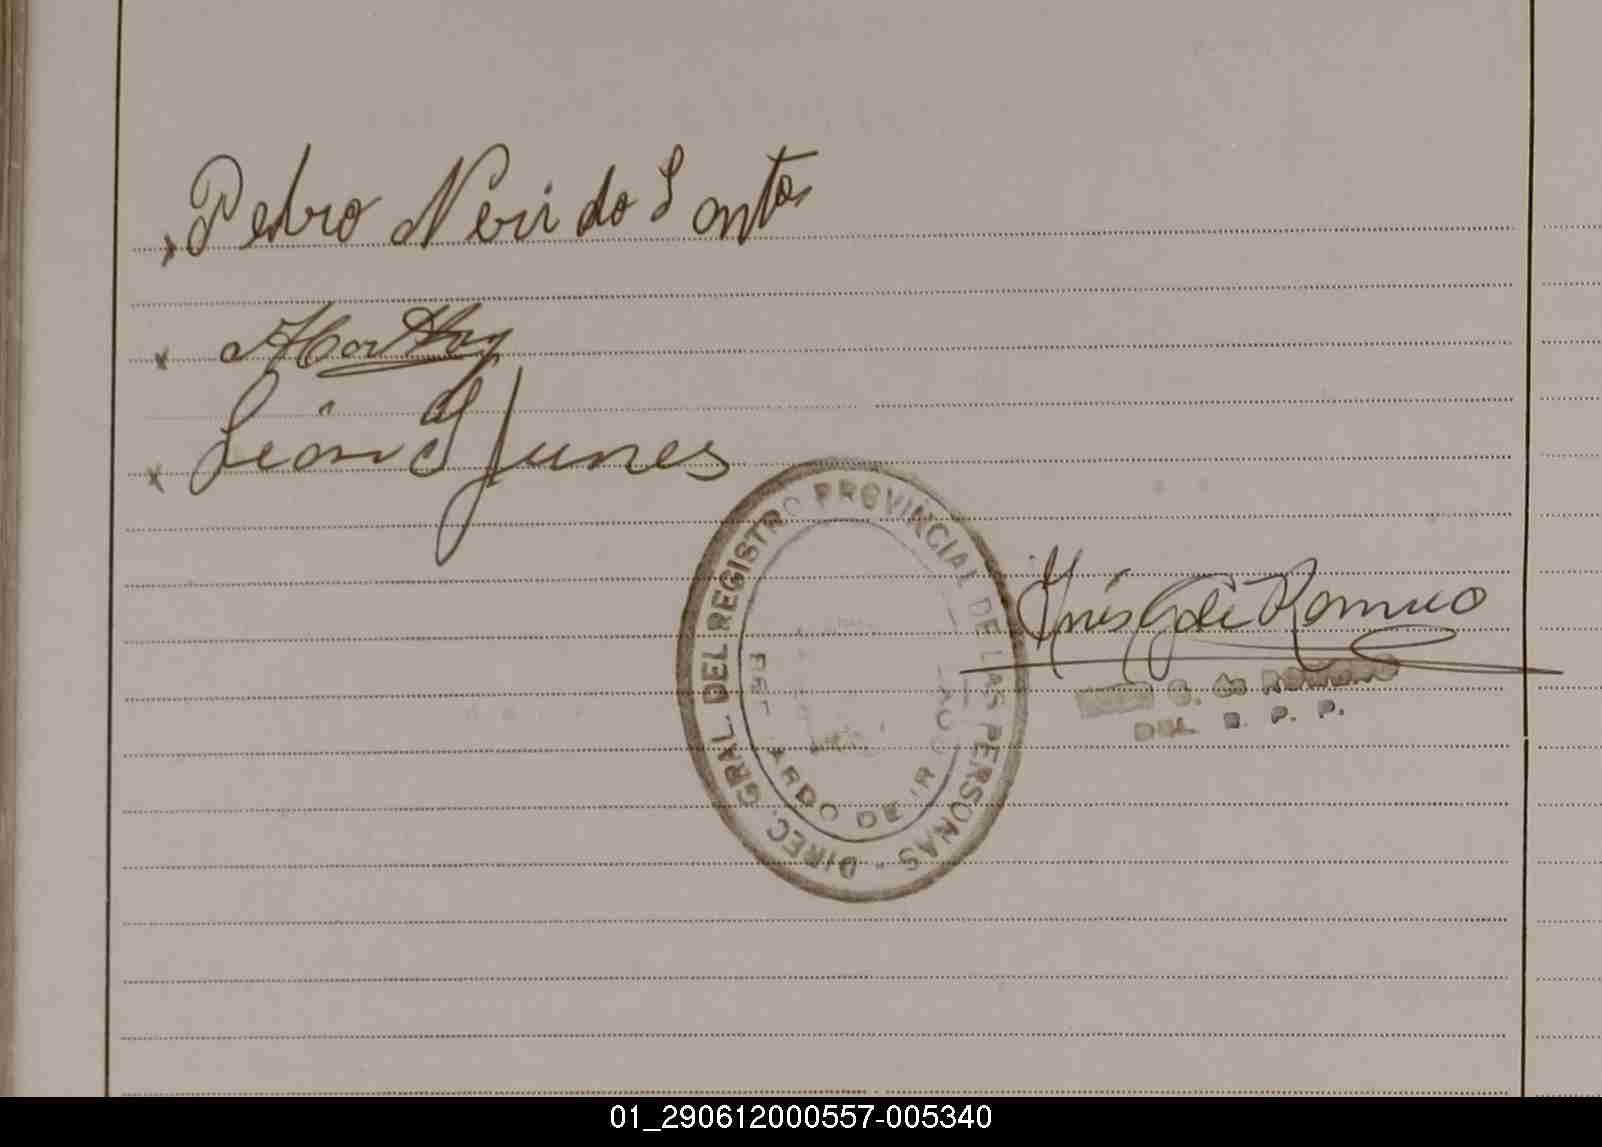 Pedro Neri do Santos
León G Junes
DIREC. GRAL. DEL REGISTRO PROVINCIAL DE LAS PERSONAS -
DE IR
Inés G de Romero
G. de ROMERO
DEL. R. P. P.
01_290612000557-005340